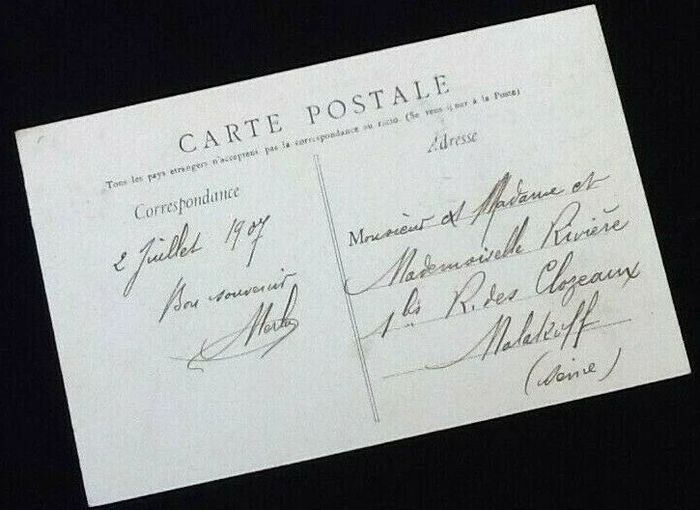 CARTE POSTALE
Tous les pays étrangers n'acceptent pas la correspondance au recto. (Se renseigner à la Poste)
Correspondance
2 Juillet 1907
Bon souvenir
Adresse
Monsieur et Madame et
Mademoiselle Rivière
1 bis R. des Clozeaux
Malakoff
(Seine)